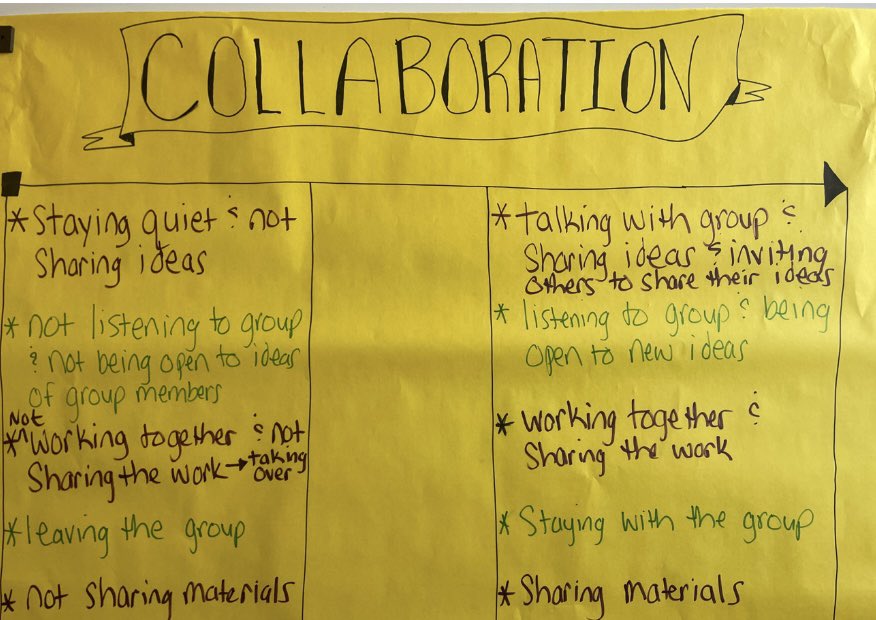 COLLABORATION
* Staying quiet & not
Sharing ideas
* not listening to group
& not being open to ideas
of group members
Not
* ^ Working together & not
Sharing the work → taking
over
* leaving the group
* not sharing materials
* talking with group &
Sharing ideas & inviting
others to share their ideas
* listening to group & being
open to new ideas
* working together &
Sharing the work
* Staying with the group
* Sharing materials